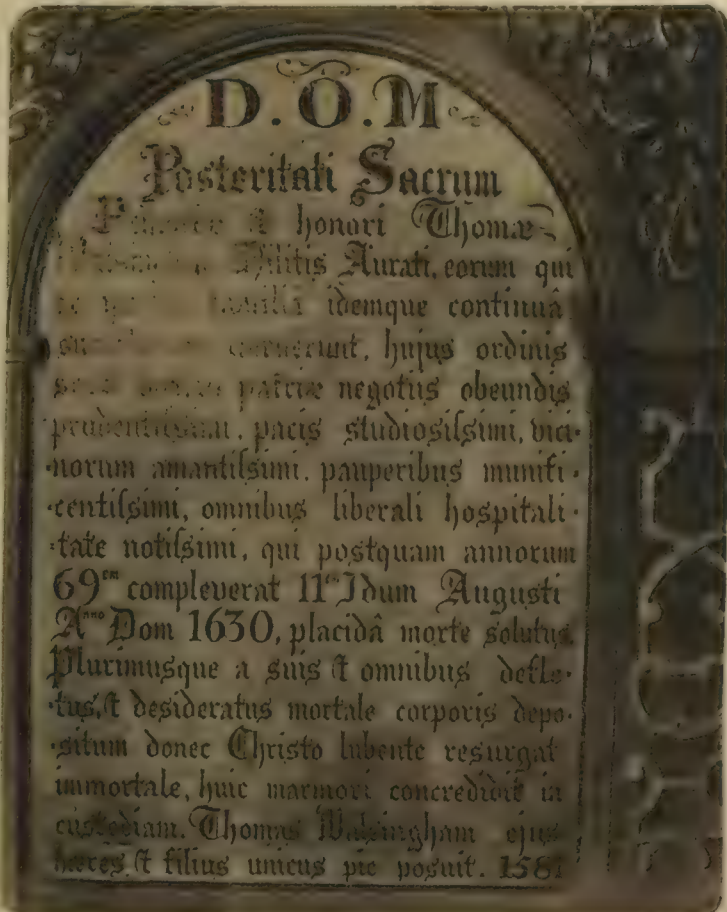 D. O. M
Posteritati Sacrum
honori Thomæ
Militis Aurati, eorum qui
familia idemque continuâ
hujus ordinis
patriæ negotiis obeundis
prudentissimi, pacis studiosissimi, vici-
-norum amantissimi, pauperibus munifi-
-centissimi, omnibus liberali hospitali-
-tate notissimi, qui postquam annorum
69um compleverat 11um Idum Augusti
Anno Dom 1630, placidâ morte solutus,
Plurimusque a suis & omnibus defle-
-tus, & desideratus mortale corporis depo-
-situm donec Christo Iubente resurgat
immortale, huic marmori concredidit in
custodiam. Thomas Walsingham ejus
hæres & filius unicus pie posuit. 1581